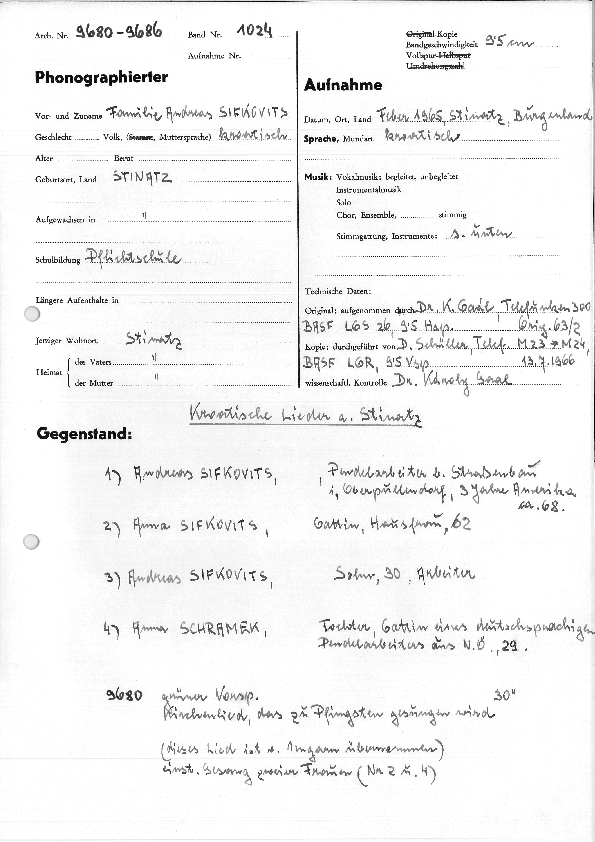 Arch. Nr. 9680-9686
Band Nr. 1024
Aufnahme Nr.
Original-Kopie
Bandgeschwindigkeit 9'5 cm
Vollspur-Halbspur
Umdrehungszahl
Phonographierter
Vor- und Zuname Familie Andreas SIFKOVITS
Geschlecht Volk, (Stamm, Muttersprache) kroatisch
Alter Beruf
Geburtsort, Land STINATZ
Aufgewachsen in "
Schulbildung Pflichtschule
Längere Aufenthalte in
Jetziger Wohnort Stinatz
Heimat
des Vaters "
der Mutter "
Aufnahme
Datum, Ort, Land Feber 1965 Stinatz, Burgenland
Sprache, Mundart kroatisch
Musik: Vokalmusik: begleitet, unbegleitet
Instrumentalmusik
Solo
Chor, Ensemble, stimmig
Stimmgattung, Instrumente: s. unten
Technische Daten:
Original: aufgenommen durch Dr. K. Gaál, Telefunken 300
BASF LGS 26, 9'5 Hsp. Orig. 63/2
Kopie: durchgeführt von D. Schüller, Telef. M23 → M24,
BASF LGR, 9'5 Vsp. 13.7.1966
wissenschaftl. Kontrolle Dr. Károly Gaal
Kroatische Lieder a. Stinatz
Gegenstand:
1) Andreas SIFKOVITS, , Pendelarbeiter b. Straßenbau
i, Oberpullendorf, 3 Jahre Amerika
ca. 68.
2) Anna SIFKOVITS, Gattin, Hausfrau, 62
3) Andreas SIFKOVITS, Sohn, 30, Arbeiter
4) Anna SCHRAMEK, Tochter, Gattin eines deutschsprachigen
Pendelarbeiters aus N.Ö., 29.
9680 grüner Vorsp. 30"
Kirchenlied, das zu Pfingsten gesungen wird
(dieses Lied ist a. Ungarn übernommen)
einst. Gesang zweier Frauen (Nr 2 u. 4)